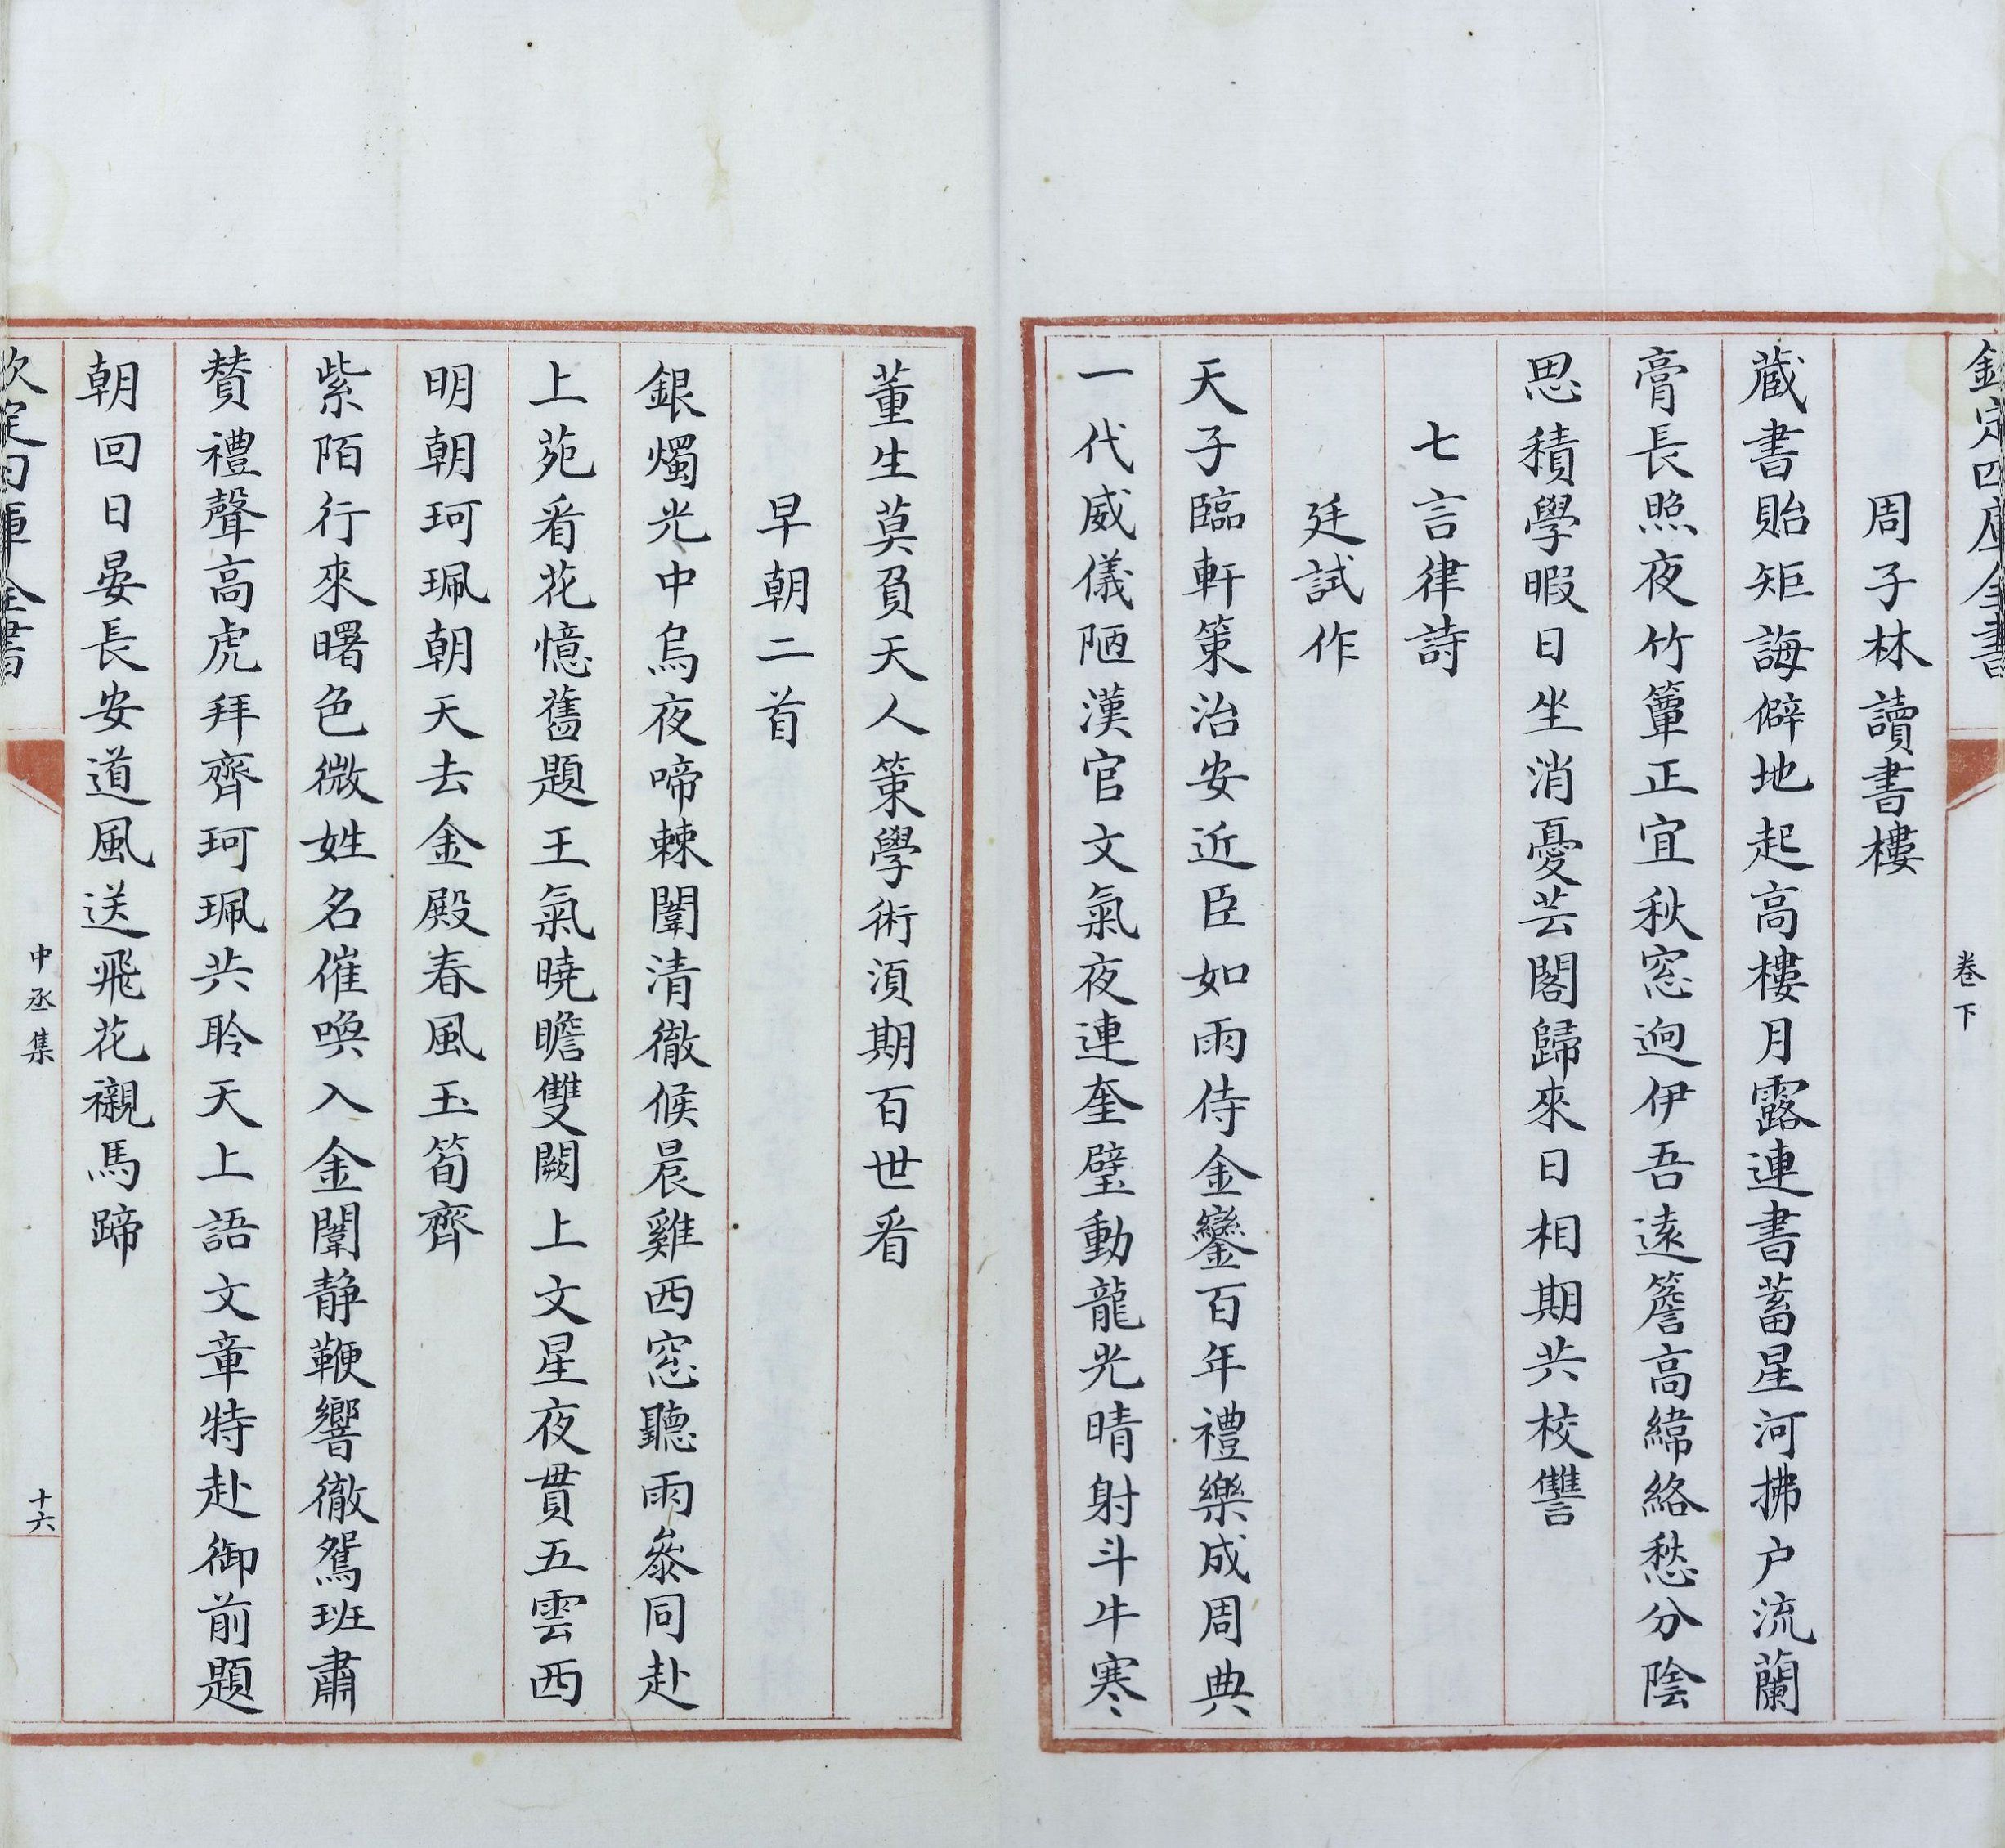 欽定四庫全書
卷下
周子林讀書樓
蔵書貽矩誨僻地起高樓月露連書蓄星河拂户流蘭
膏長照夜竹簟正宜秋窓逈伊吾遠簷高緯絡愁分陰
思積學暇日坐消憂芸閣歸來日相期共校讐
七言律詩
廷試作
天子臨軒策治安近臣如雨侍金鑾百年禮樂成周典
一代威儀陋漢官文氣夜連奎璧動龍光晴射斗牛寒
董生莫負天人策學術須期百世看
早朝二首
銀燭光中烏夜啼棘闈清徹候晨雞西窓聽雨叅同赴
上苑看花憶舊題王氣曉瞻雙闕上文星夜貫五雲西
明朝珂珮朝天去金殿春風玉筍齊
紫陌行來曙色微姓名催喚入金闈静鞭響徹鴛班肅
賛禮聲高虎拜齊珂珮共聆天上語文章特赴御前題
朝回日晏長安道風送飛花襯馬蹄
欽定四庫全書
中丞集
十六